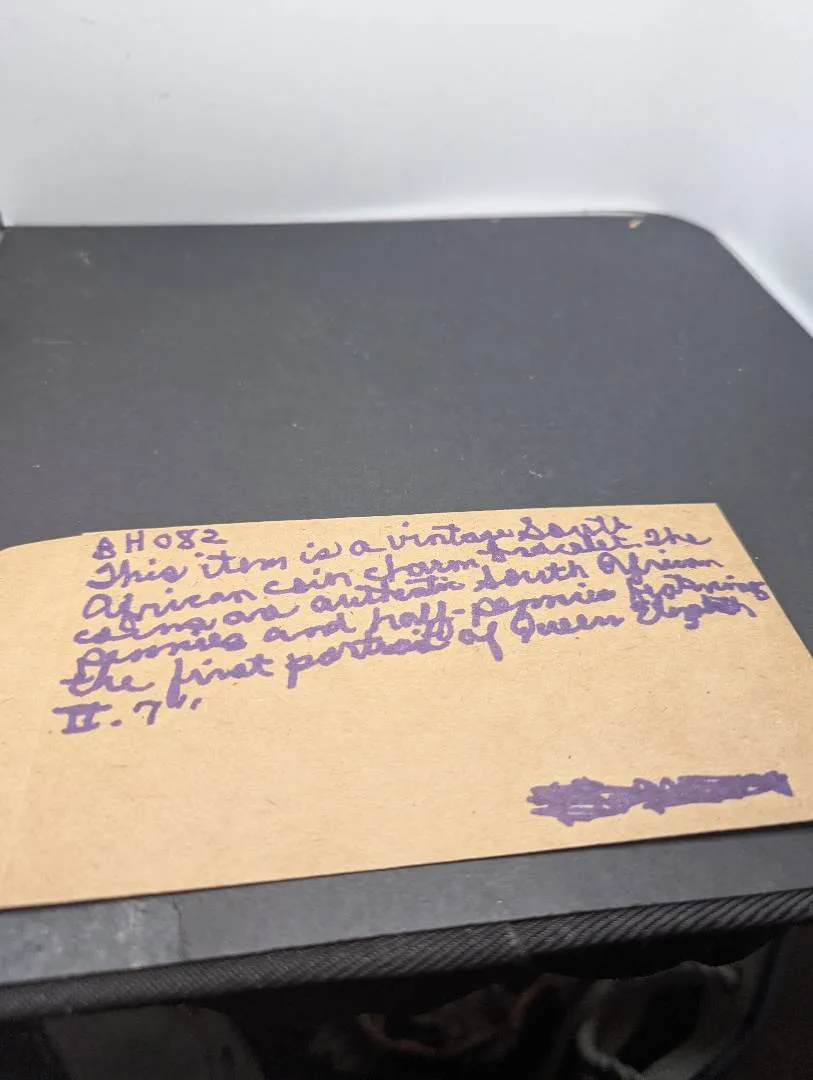 BH082
This item is a vintage South
African coin charm bracelet. The
coins are authentic South African
pennies and half-pennies featuring
the first portrait of Queen Elizabeth
II. 7"